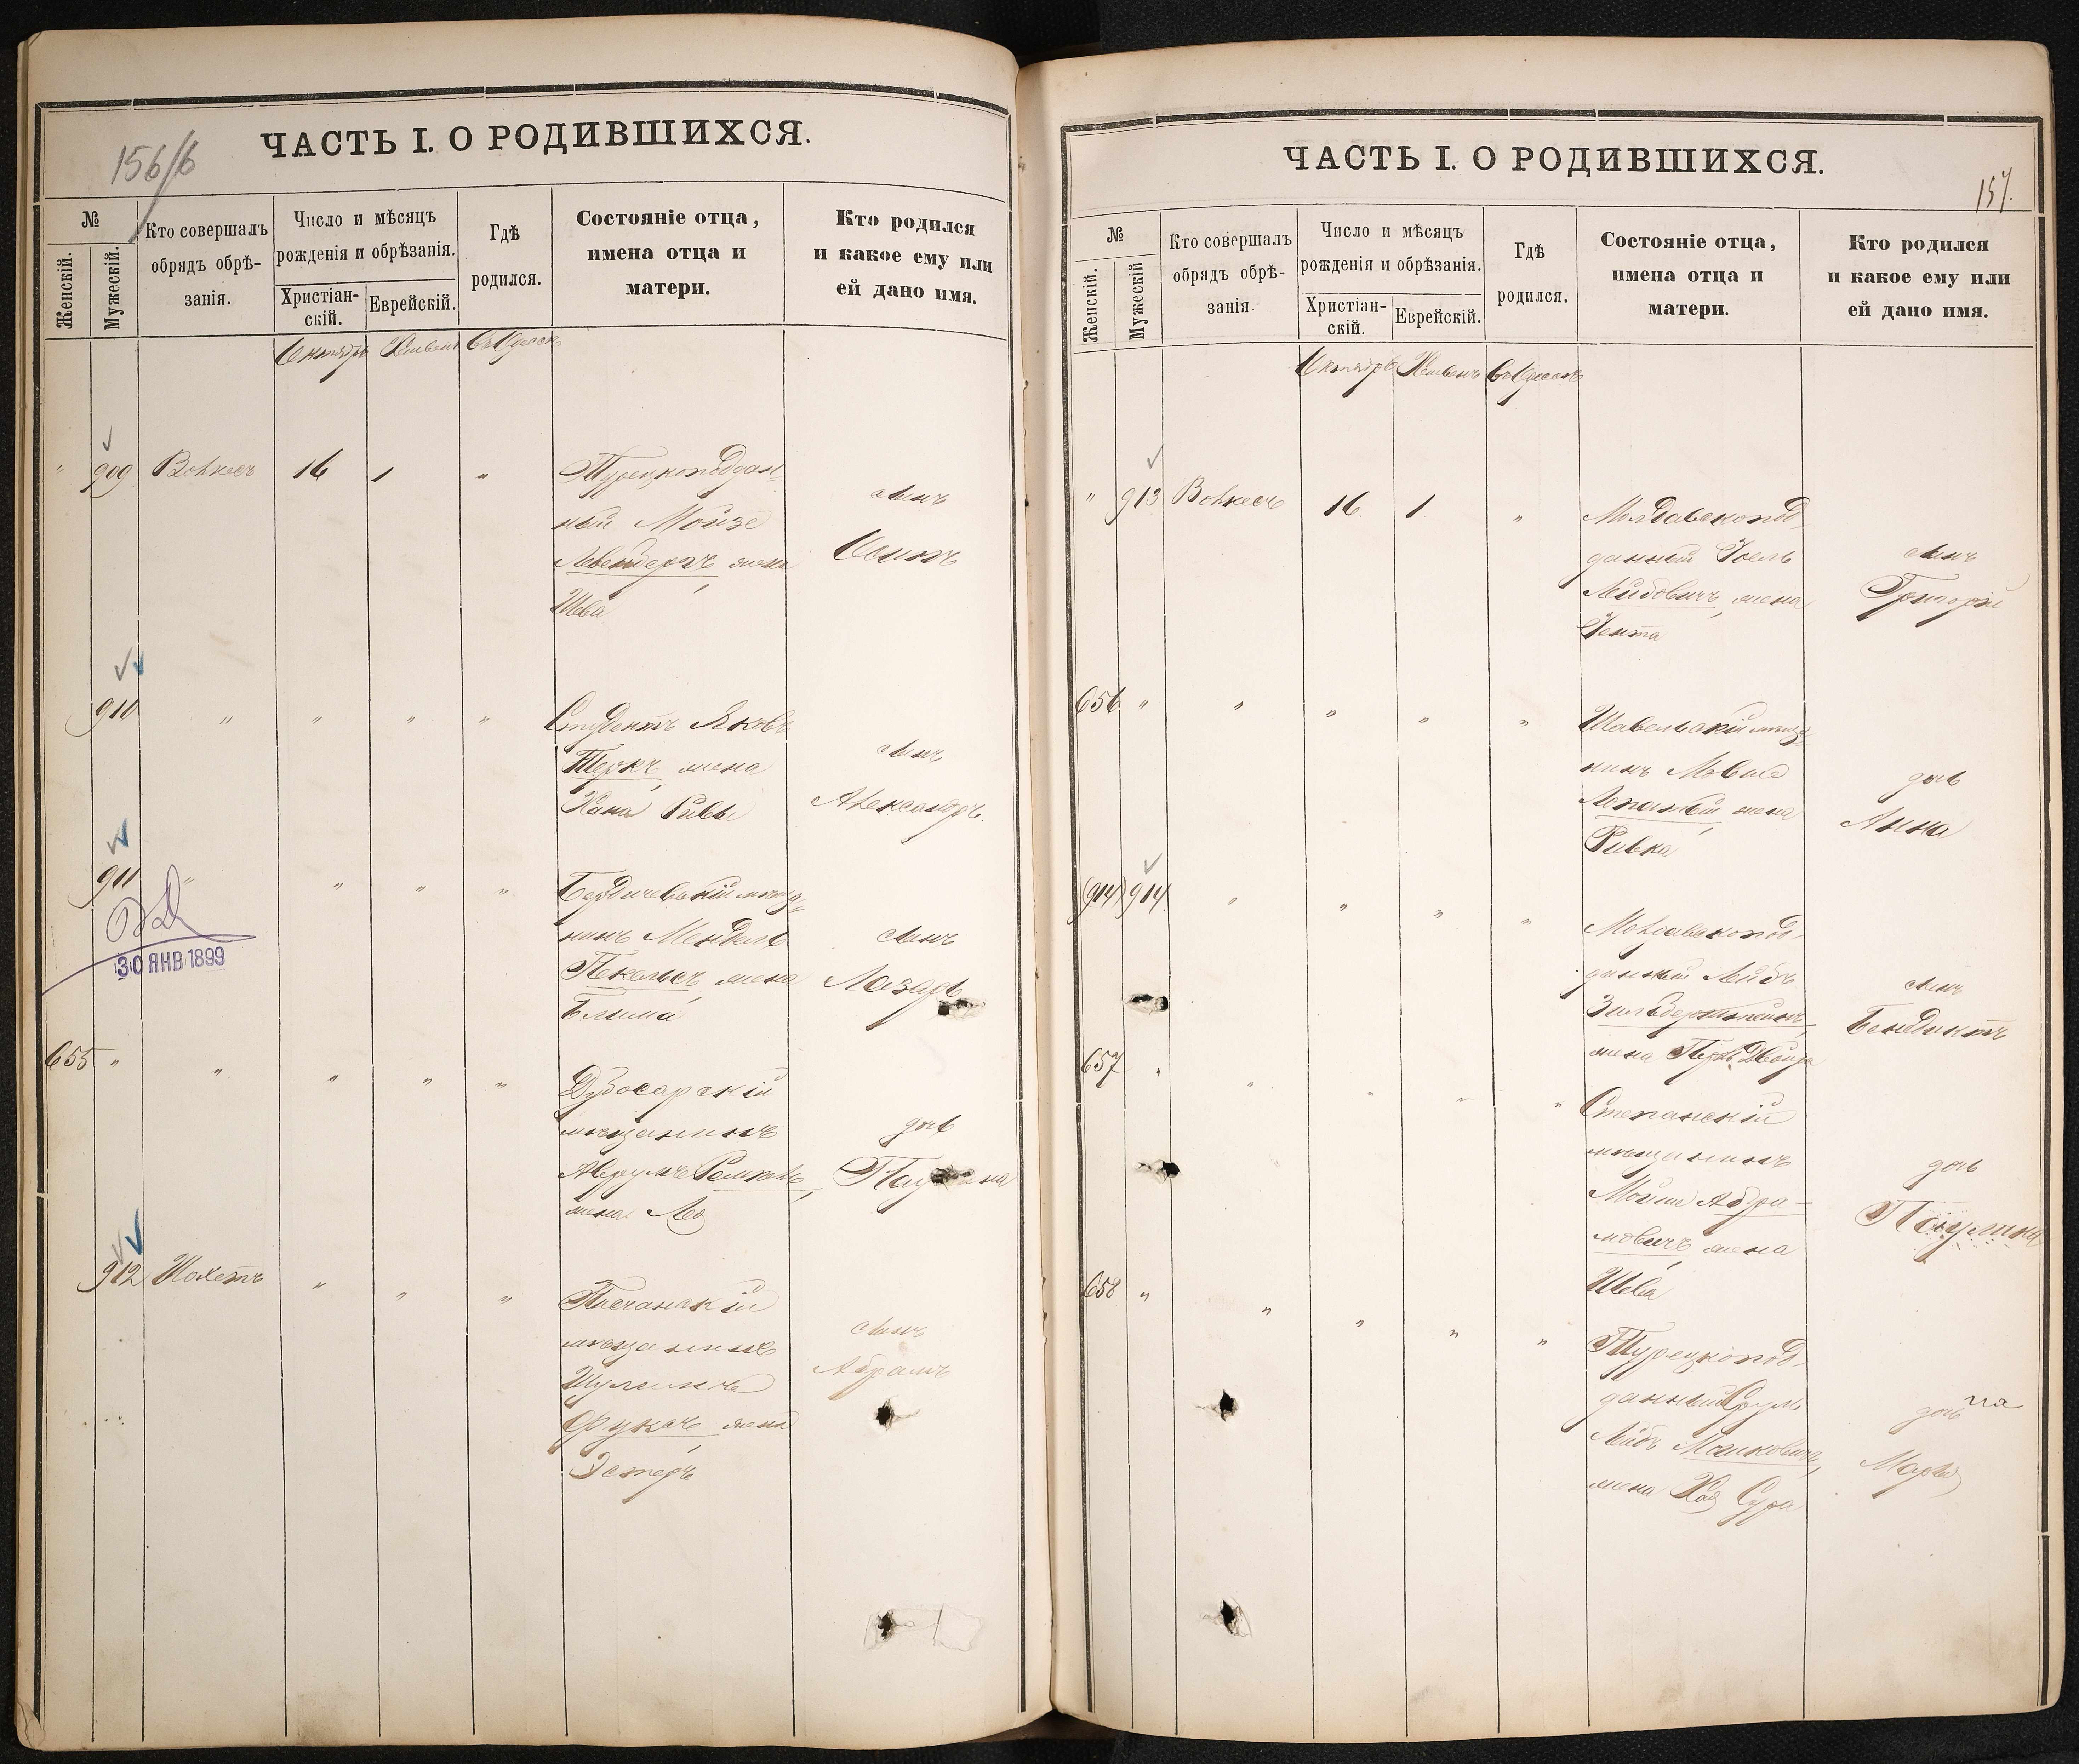 156/б
ЧАСТЬ I. О РОДИВШИХСЯ.
№
Женскій.
Мужескій.
Кто совершалъ
обрядъ обрѣ-
занія.
Число и мѣсяцъ
рожденія и обрѣзанія.
Христіан-
скій.
Еврейскій.
Гдѣ
родился.
Состояніе отца,
имена отца и
матери.
Кто родился
и какое ему или
ей дано имя.
Октябрь Хешвенъ Въ Одессѣ
" 909 Волкесъ 16 1 "
Турецкоподдан-
ный Мойзе
жена
Шева
сынъ
Осипъ
910 " " " "
Студентъ Яковъ
Теркъ, жена
Хана Ривы
сынъ
Александръ.
911 " " " "
Бердичевскій мѣща-
нинъ Мендель
Пекельсъ, жена
Блима
сынъ
Лазарь
30 ЯНВ 1899
655 " " " " "
Дубосарскій
мѣщанинъ
Аврумъ
жена Лея
дочь
912 Шохетъ " " "
Песчанскій
мѣщанинъ
Шулимъ
Фукъ, жена
Эстеръ
сынъ
Абрамъ
ЧАСТЬ I. О РОДИВШИХСЯ.
157.
№
Женскій.
Мужескій
Кто совершалъ
обрядъ обрѣ-
занія.
Число и мѣсяцъ
рожденія и обрѣзанія.
Христіан-
скій.
Еврейскій.
Гдѣ
родился.
Состояніе отца,
имена отца и
матери.
Кто родился
и какое ему или
ей дано имя.
Октябрь Хешвенъ Въ Одессѣ
" 913 Волкесъ 16. 1 "
Молдавскопод-
данный Іоель
Лейбовичъ, жена
Іента
сынъ
Григорій
656 " " " " "
Шавельскій мѣща-
нинъ Мовше
жена
Ривка
дочь
Анна
(914) 914 " " " "
Молдавскопод-
данный Лейбъ
Зильберштейнъ,
жена Перль Двойра
сынъ
Бендиктъ
657 " " " " "
Степанскій
мѣщанинъ
Мойше Абра-
мовичъ, жена
Шева
дочь
Паулина
658 " " " " "
Турецкопод-
данный Срулъ
Лейбъ Моисковичъ,
жена Хая Сура
дочь
Марія